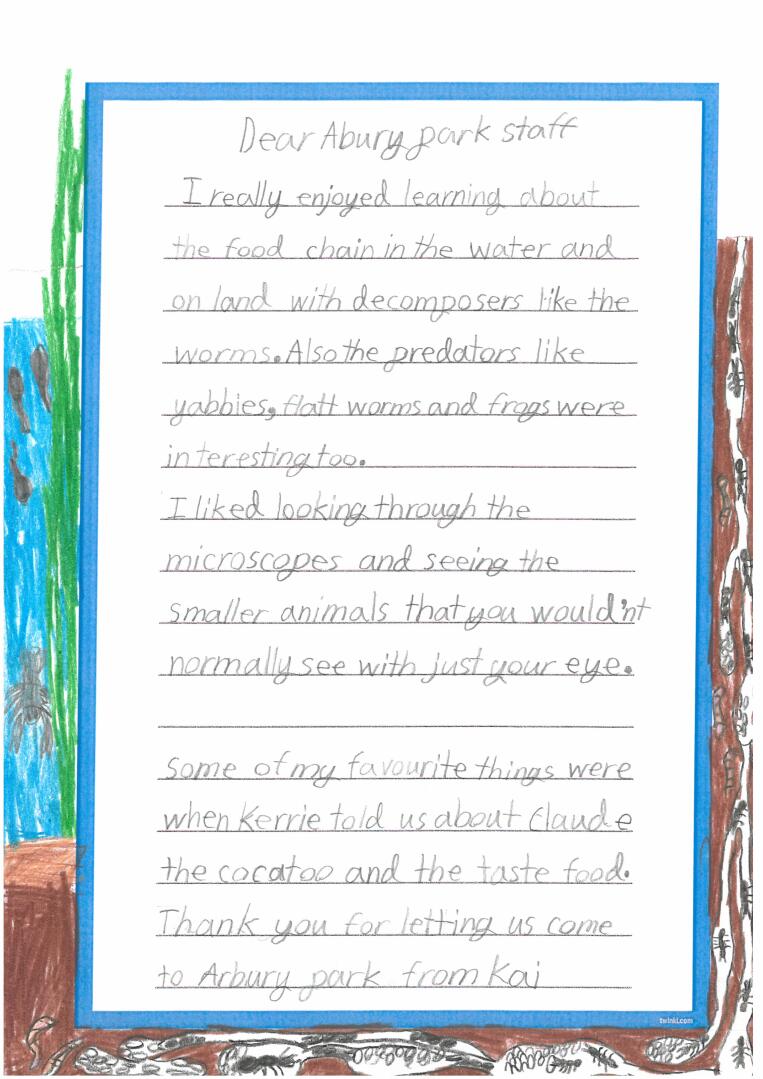 Dear Abury park staff
I really enjoyed learning about
the food chain in the water and
on land with decomposers like the
worms. Also the predators like
yabbies, flatt worms and frogs were
interesting too.
I liked looking through the
microscopes and seeing the
smaller animals that you would'nt
normally see with just your eye.
some of my favourite things were
when Kerrie told us about Claude
the cocatoo and the taste food.
Thank you for letting us come
to Arbury park from Kai
twinkl.com